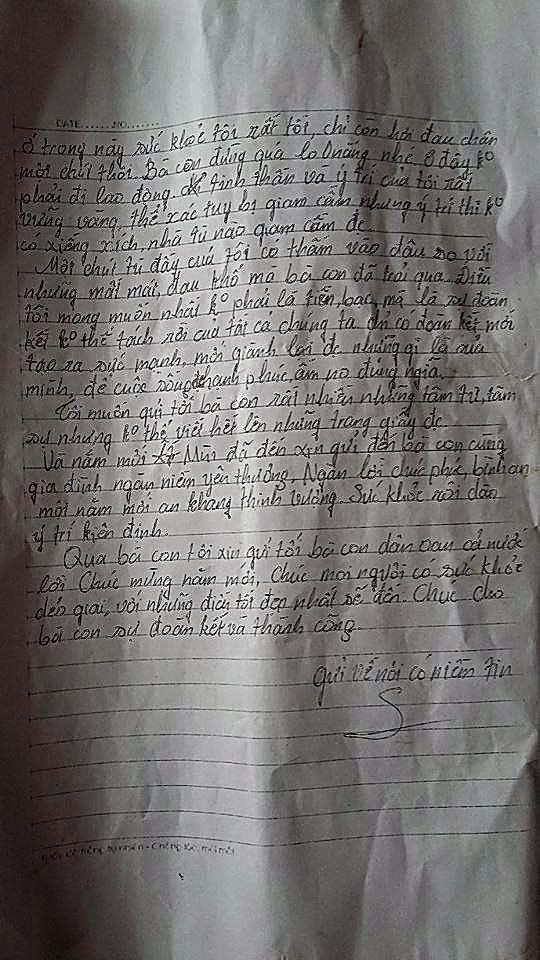 DATE.......NO.......
Ở trong này sức khoẻ tôi rất tốt, chỉ còn hơi đau chân
một chút thôi. Bà con đừng quá lo lắng nhé ở đây ko
phải đi lao động. tinh thần và ý trí của tôi rất
vững vàng, thể xác tuy bị giam cầm nhưng ý trí thì ko
có xiềng xích, nhà tù nào giam cầm đc.
Một chút từ đây của tôi có thấm vào đâu so với
những mất mát, đau khổ mà bà con đã trải qua. Điều
tôi mong muốn nhất ko phải là tiền bạc, mà là sự đoàn
kết ko thể tách rời của tất cả chúng ta chỉ có đoàn kết mới
tạo ra sức mạnh, mới giành lại đc những gì là của
mình, để cuộc sống đc hạnh phúc, ấm no đúng nghĩa.
Tôi muốn gửi tới bà con rất nhiều những tâm tư, tâm
sự nhưng ko thể viết hết lên những trang giấy đc.
Và năm mới Mùi đã đến xin gửi đến bà con cùng
gia đình ngàn niềm yêu thương, Ngàn lời chúc phúc, bình an
một năm mới an khang thịnh vượng. Sức khỏe rồi dào
ý trí kiên định.
Qua bà con tôi xin gửi tới bà con dân oan cả nước
lời Chúc mừng năm mới, Chúc mọi người có sức khỏe
dẻo giai, với những điều tốt đẹp nhất sẽ đến. Chúc cho
bà con sự đoàn kết và thành công.
Gửi về nơi có niềm tin
S